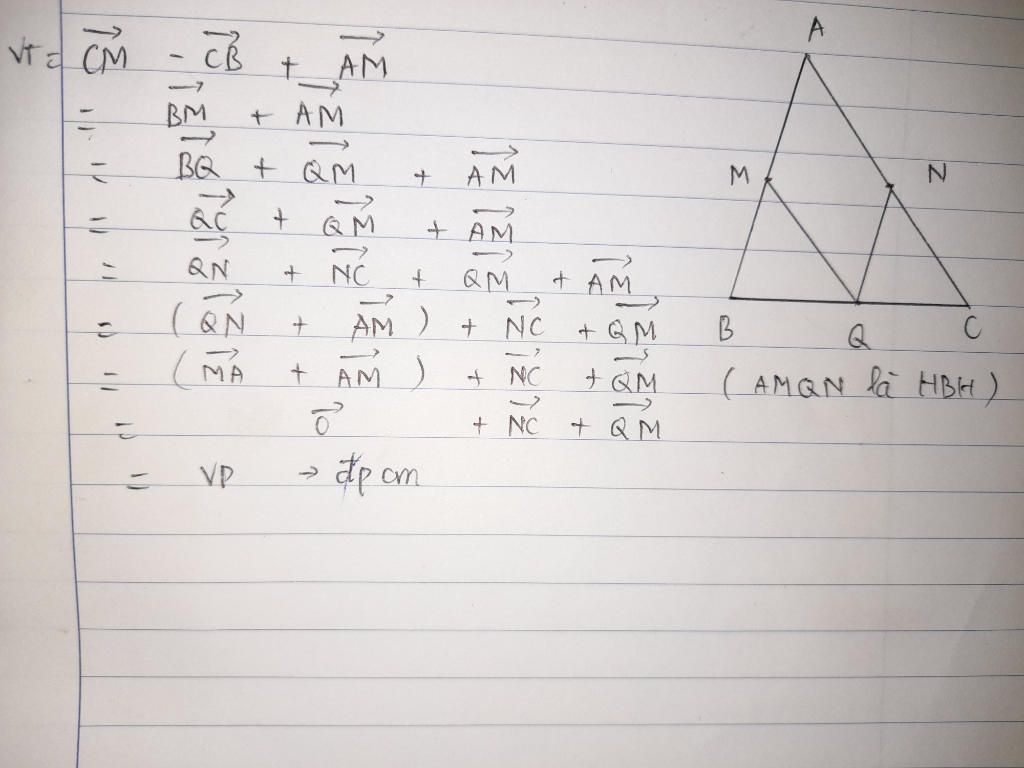 VT = \overrightarrow{CM} - \overrightarrow{CB} + \overrightarrow{AM}
= \overrightarrow{BM} + \overrightarrow{AM}
= \overrightarrow{BQ} + \overrightarrow{QM} + \overrightarrow{AM}
= \overrightarrow{QC} + \overrightarrow{QM} + \overrightarrow{AM}
= \overrightarrow{QN} + \overrightarrow{NC} + \overrightarrow{QM} + \overrightarrow{AM}
= (\overrightarrow{QN} + \overrightarrow{AM}) + \overrightarrow{NC} + \overrightarrow{QM}
= (\overrightarrow{MA} + \overrightarrow{AM}) + \overrightarrow{NC} + \overrightarrow{QM} (AMQN là HBH)
= \overrightarrow{0} + \overrightarrow{NC} + \overrightarrow{QM}
= VP → đpcm
A
M N
B Q C